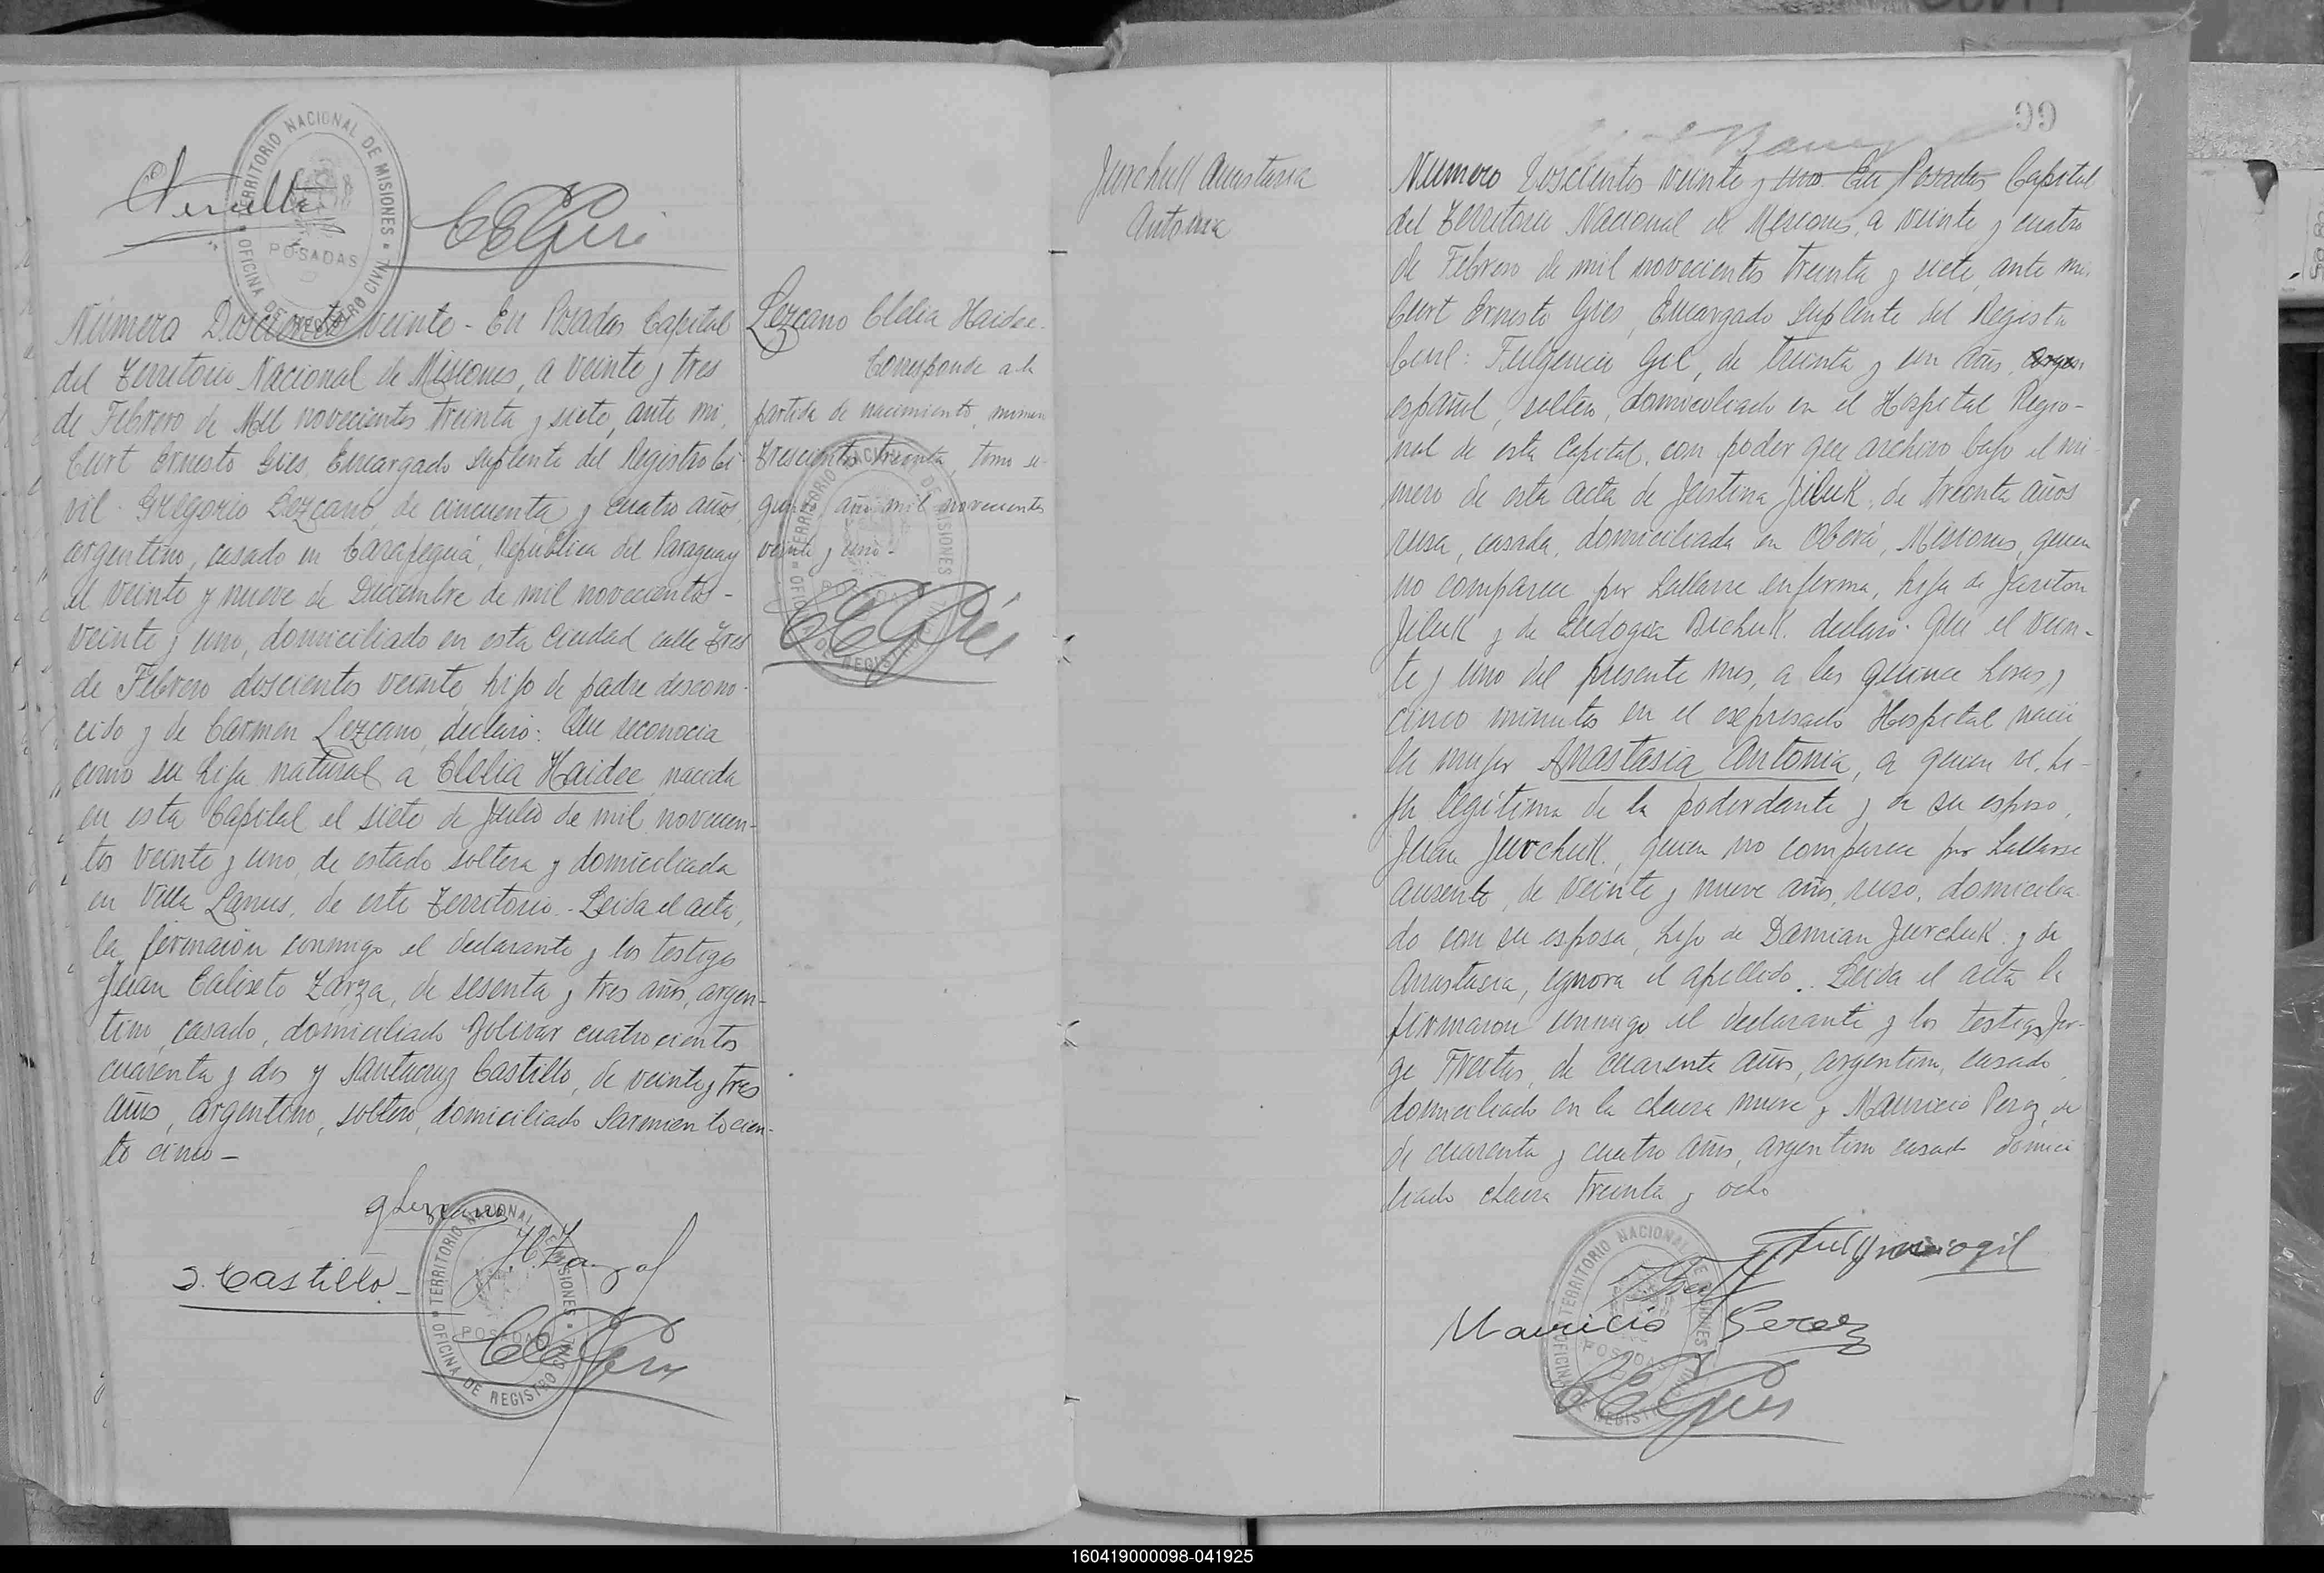 TERRITORIO NACIONAL DE MISIONES
OFICINA DE REGISTRO CIVIL
POSADAS
Número Doscientos veinte - En Posadas Capital
del Territorio Nacional de Misiones, a veinte y tres
de Febrero de Mil novecientos treinta y siete, ante mi,
Curt Ernesto Gies, Encargado Suplente del Registro Ci-
vil: Gregorio Lezcano, de cincuenta y cuatro años,
argentino, casado en Carapeguá, República del Paraguay
el veinte y nueve de Diciembre de mil novecientos -
veinte y uno, domiciliado en esta Ciudad calle Tres
de Febrero doscientos veinte, hijo de padre descono-
cido y de Carmen Lezcano, declaró: Que reconocia
como su hija natural a Clelia Haidee, nacida
en esta Capital el siete de Julio de mil novecien-
tos veinte y uno, de estado soltera y domiciliada
en Villa Lanus, de este Territorio.- Leida el acta,
la firmaron conmigo el declarante y los testigos
Juan Calixto Zarza, de sesenta y tres años, argen-
tino, casado, domiciliado Bolivar cuatrocientos
cuarenta y dos y Santacruz Castillo, de veinte y tres
años, argentino, soltero, domiciliado Sarmiento cien-
to cinco -
gLezcano
S. Castillo
TERRITORIO NACIONAL DE MISIONES
OFICINA DE REGISTRO CIVIL
POSADAS
Lezcano Clelia Haidee.
Corresponde a la
partida de nacimiento, número
Trescientos treinta, tomo se-
gundo año mil novecientos
veinte y uno -
CEGies
Jurchuk Anastasia
Antonia
99
Número Doscientos veinte y uno. En Posadas Capital
del Territorio Nacional de Misiones, a veinte y cuatro
de Febrero de mil novecientos treinta y siete, ante mi,
Curt Ernesto Gies, Encargado Suplente del Registro
Civil: Fulgencio Gil, de treinta y un años,
español, soltero, domiciliado en el Hospital Regio-
nal de esta Capital, con poder que archivo bajo el nú-
mero de esta acta de Justina Jiluk, de treinta años
rusa, casada, domiciliada en Oberá, Misiones, quien
no comparece por hallarse enferma, hija de Jariton
Jiluk y de Eudogia Buchuk. declaró: Que el vein-
te y uno del presente mes, a las quince horas y
cinco minutos en el expresado Hospital nació
la mujer Anastasia Antonia, a quien vi, hi-
ja legítima de la poderdante y de su esposo,
Juan Jurchuk, quien no comparece por hallarse
ausente, de veinte y nueve años, ruso, domicilia-
do con su esposa, hijo de Damian Jurchuk y de
Anastasia, ignora el apellido.. Leida el acta la
firmaron conmigo el declarante y los testigos Jor-
ge Freitas, de cuarenta años, argentino, casado,
domiciliado en la chacra nueve y Mauricio Perez, de
de cuarenta y cuatro años, argentino casado domici
liado chacra treinta y ocho
Fulgenciogil
Mauricio Perez
CEGies
TERRITORIO NACIONAL DE MISIONES
OFICINA DE REGISTRO CIVIL
POSADAS
160419000098-041925